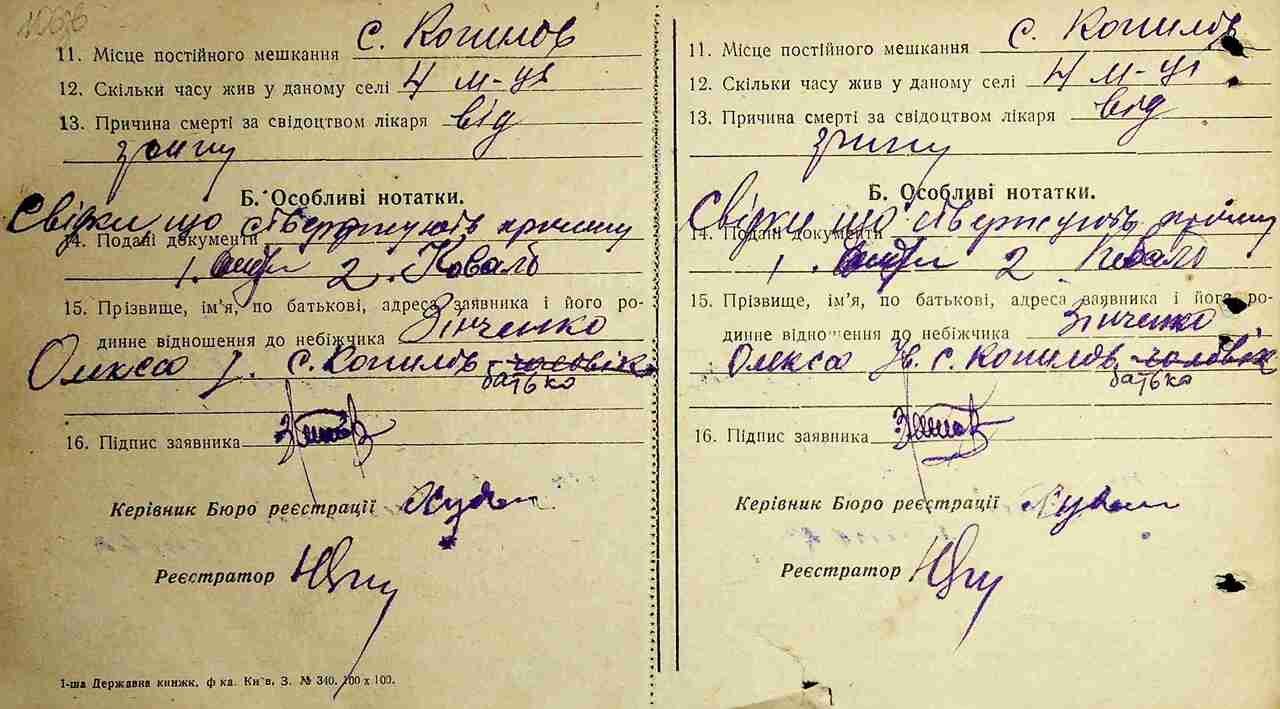 11. Місце постійного мешкання с. Копилов
12. Скільки часу жив у даному селі 4 м-ці
13. Причина смерті за свідоцтвом лікаря від
грипу
Б. Особливі нотатки.
Свідки що стверджують кончину
14. Подані документи
1. 2. Коваль
15. Прізвище, ім'я, по батькові, адреса заявника і його ро-
динне відношення до небіжчика Зінченко
Олекса с. Копилов чоловік
батько
16. Підпис заявника
Керівник Бюро реєстрації
Реєстратор
1-ша Державна книжк. ф-ка. Київ. З. № 340. 100 х 100.
11. Місце постійного мешкання с. Копилов
12. Скільки часу жив у даному селі 4 м-ці
13. Причина смерті за свідоцтвом лікаря від
грипу
Б. Особливі нотатки.
Свідки що стверджують
14. Подані документи
1. 2 Коваль
15. Прізвище, ім'я, по батькові, адреса заявника і його ро-
динне відношення до небіжчика Зінченко
Олекса Ів. с. Копилов, чоловік
батько
16. Підпис заявника
Керівник Бюро реєстрації
Реєстратор